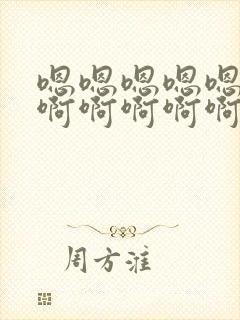 嗯嗯嗯嗯嗯
啊啊啊啊啊
周方淮